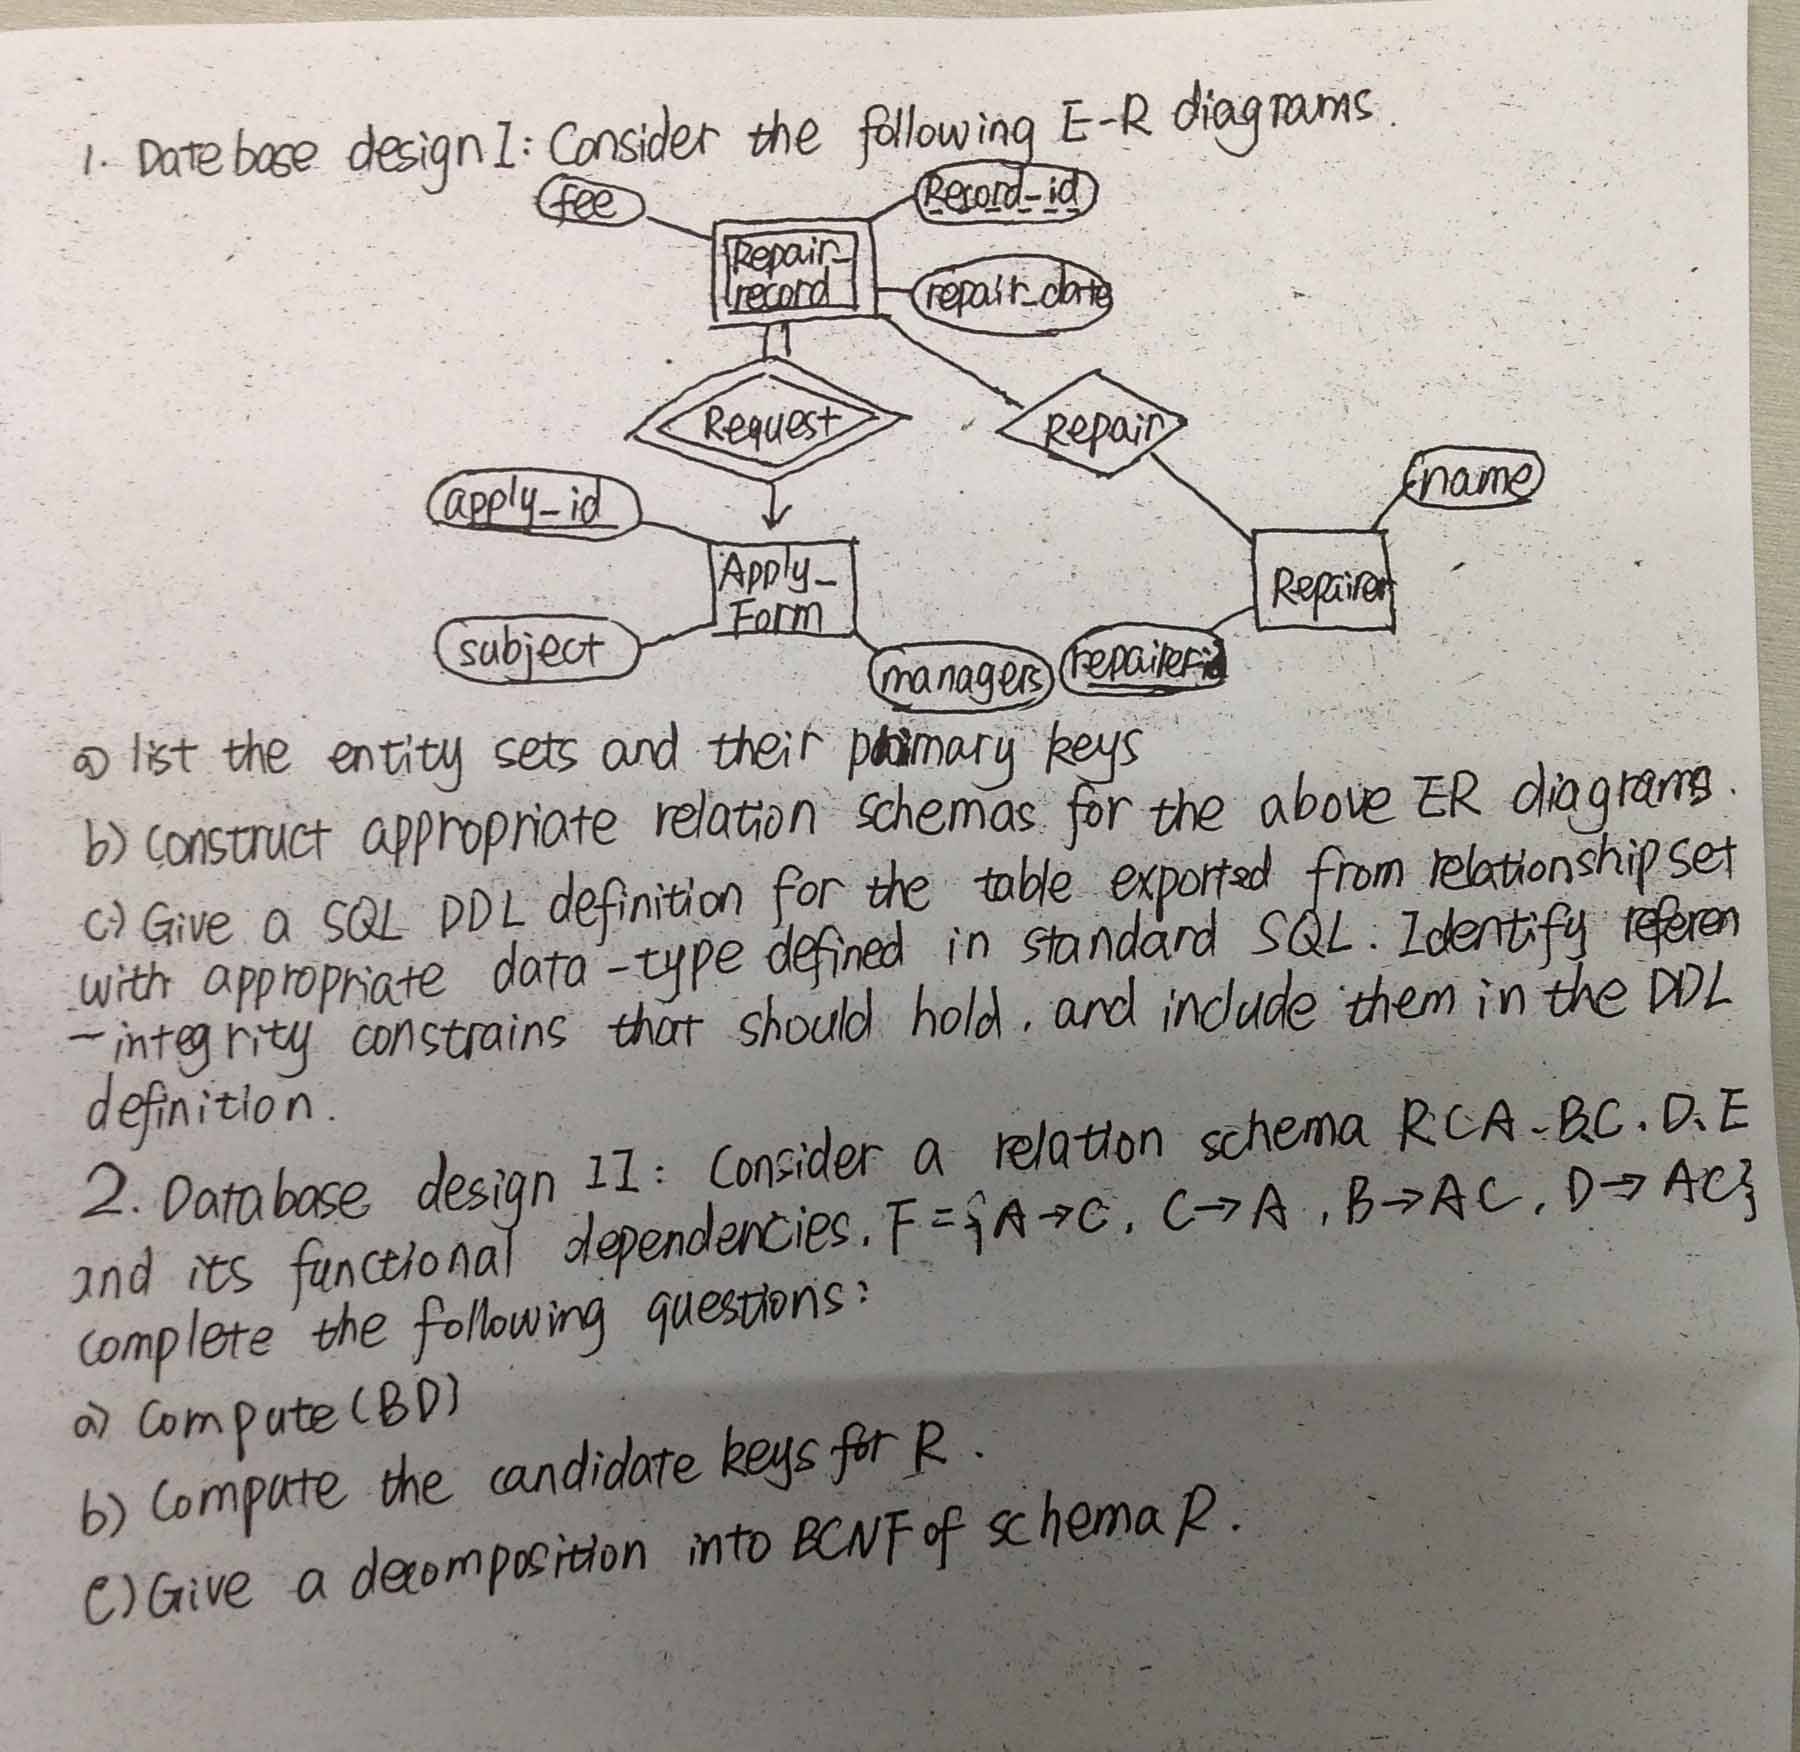 1. Datebase design I: Consider the following E-R diagrams.
fee
Record-id
Repair_
record
repair_date
Request
Repair
apply_id
name
Apply_
Form
Repairer
subject
managers
repairer-id
a) list the entity sets and their primary keys
b) construct appropriate relation schemas for the above ER diagrams.
c) Give a SQL DDL definition for the table exported from relationship set
with appropriate data-type defined in standard SQL. Identify referen
-integrity constrains that should hold, and include them in the DDL
definition.
2. Database design II: Consider a relation schema R(A、B、C、D、E
and its functional dependencies, F={A→C, C→A, B→AC, D→AC}
complete the following questions:
a) Compute (BD)
b) Compute the candidate keys for R.
c) Give a decomposition into BCNF of schema R.